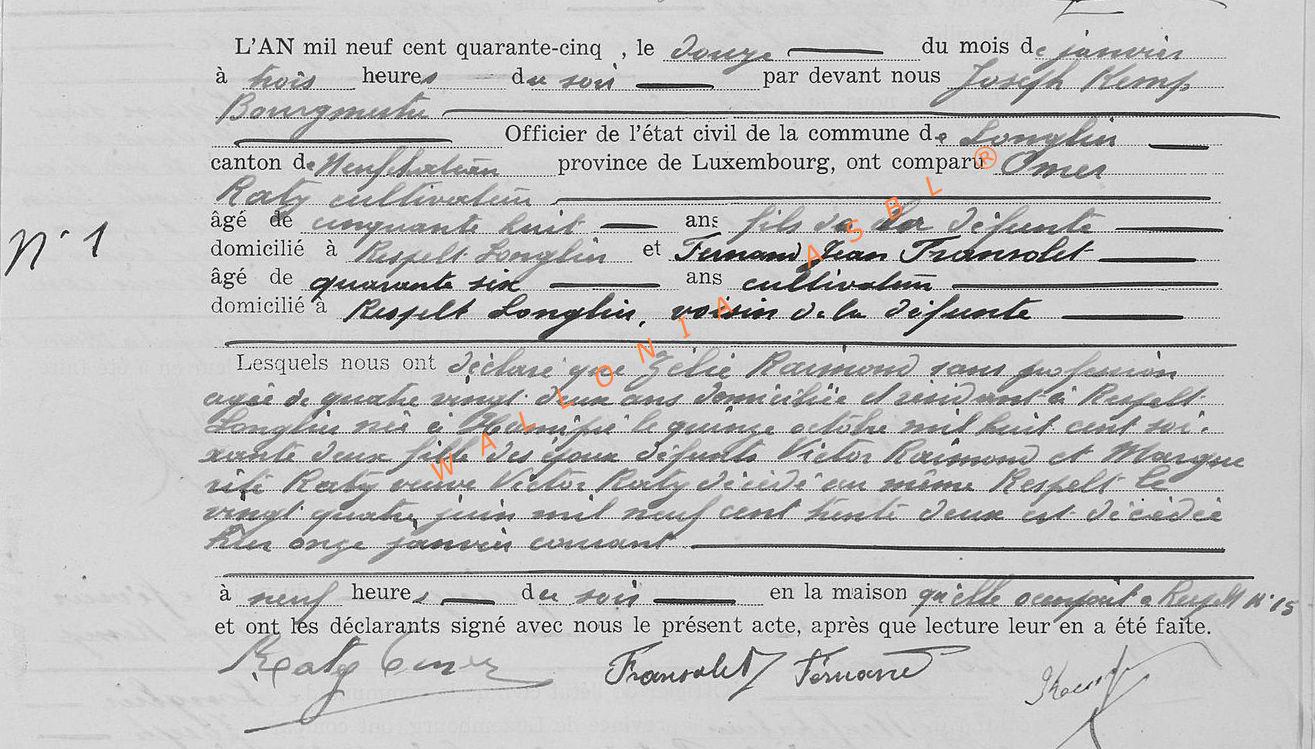 L'AN mil neuf cent quarante-cinq, le douze du mois de janvier
à trois heures du soir par devant nous Joseph Kemp
Bourgmestre
Officier de l'état civil de la commune de Longlier
canton de Neufchateau province de Luxembourg, ont comparu Omer
Raty cultivateur
âgé de cinquante huit ans fils de la défunte
N° 1
domicilié à Respelt Longlier et Fernand Jean Fransolet
âgé de quarante six ans cultivateur
domicilié à Respelt Longlier, voisin de la défunte
Lesquels nous ont déclaré que Zélie Raimond sans profession
agée de quatre vingt deux ans domiciliée et résidant à Respelt
Longlier née à le quinze octobre mil huit cent soi-
xante deux fille des époux défunts Victor Raimond et Margue
rite Raty veuve Victor Raty décédé au même Respelt le
vingt quatre juin mil neuf cent trente deux est décédée
hier onze janvier courant
à neuf heures du soir en la maison qu'elle occupait à Respelt N° 15
et ont les déclarants signé avec nous le présent acte, après que lecture leur en a été faite.
Raty Omer Fransolet Fernand
WALLONIA ASBL ®